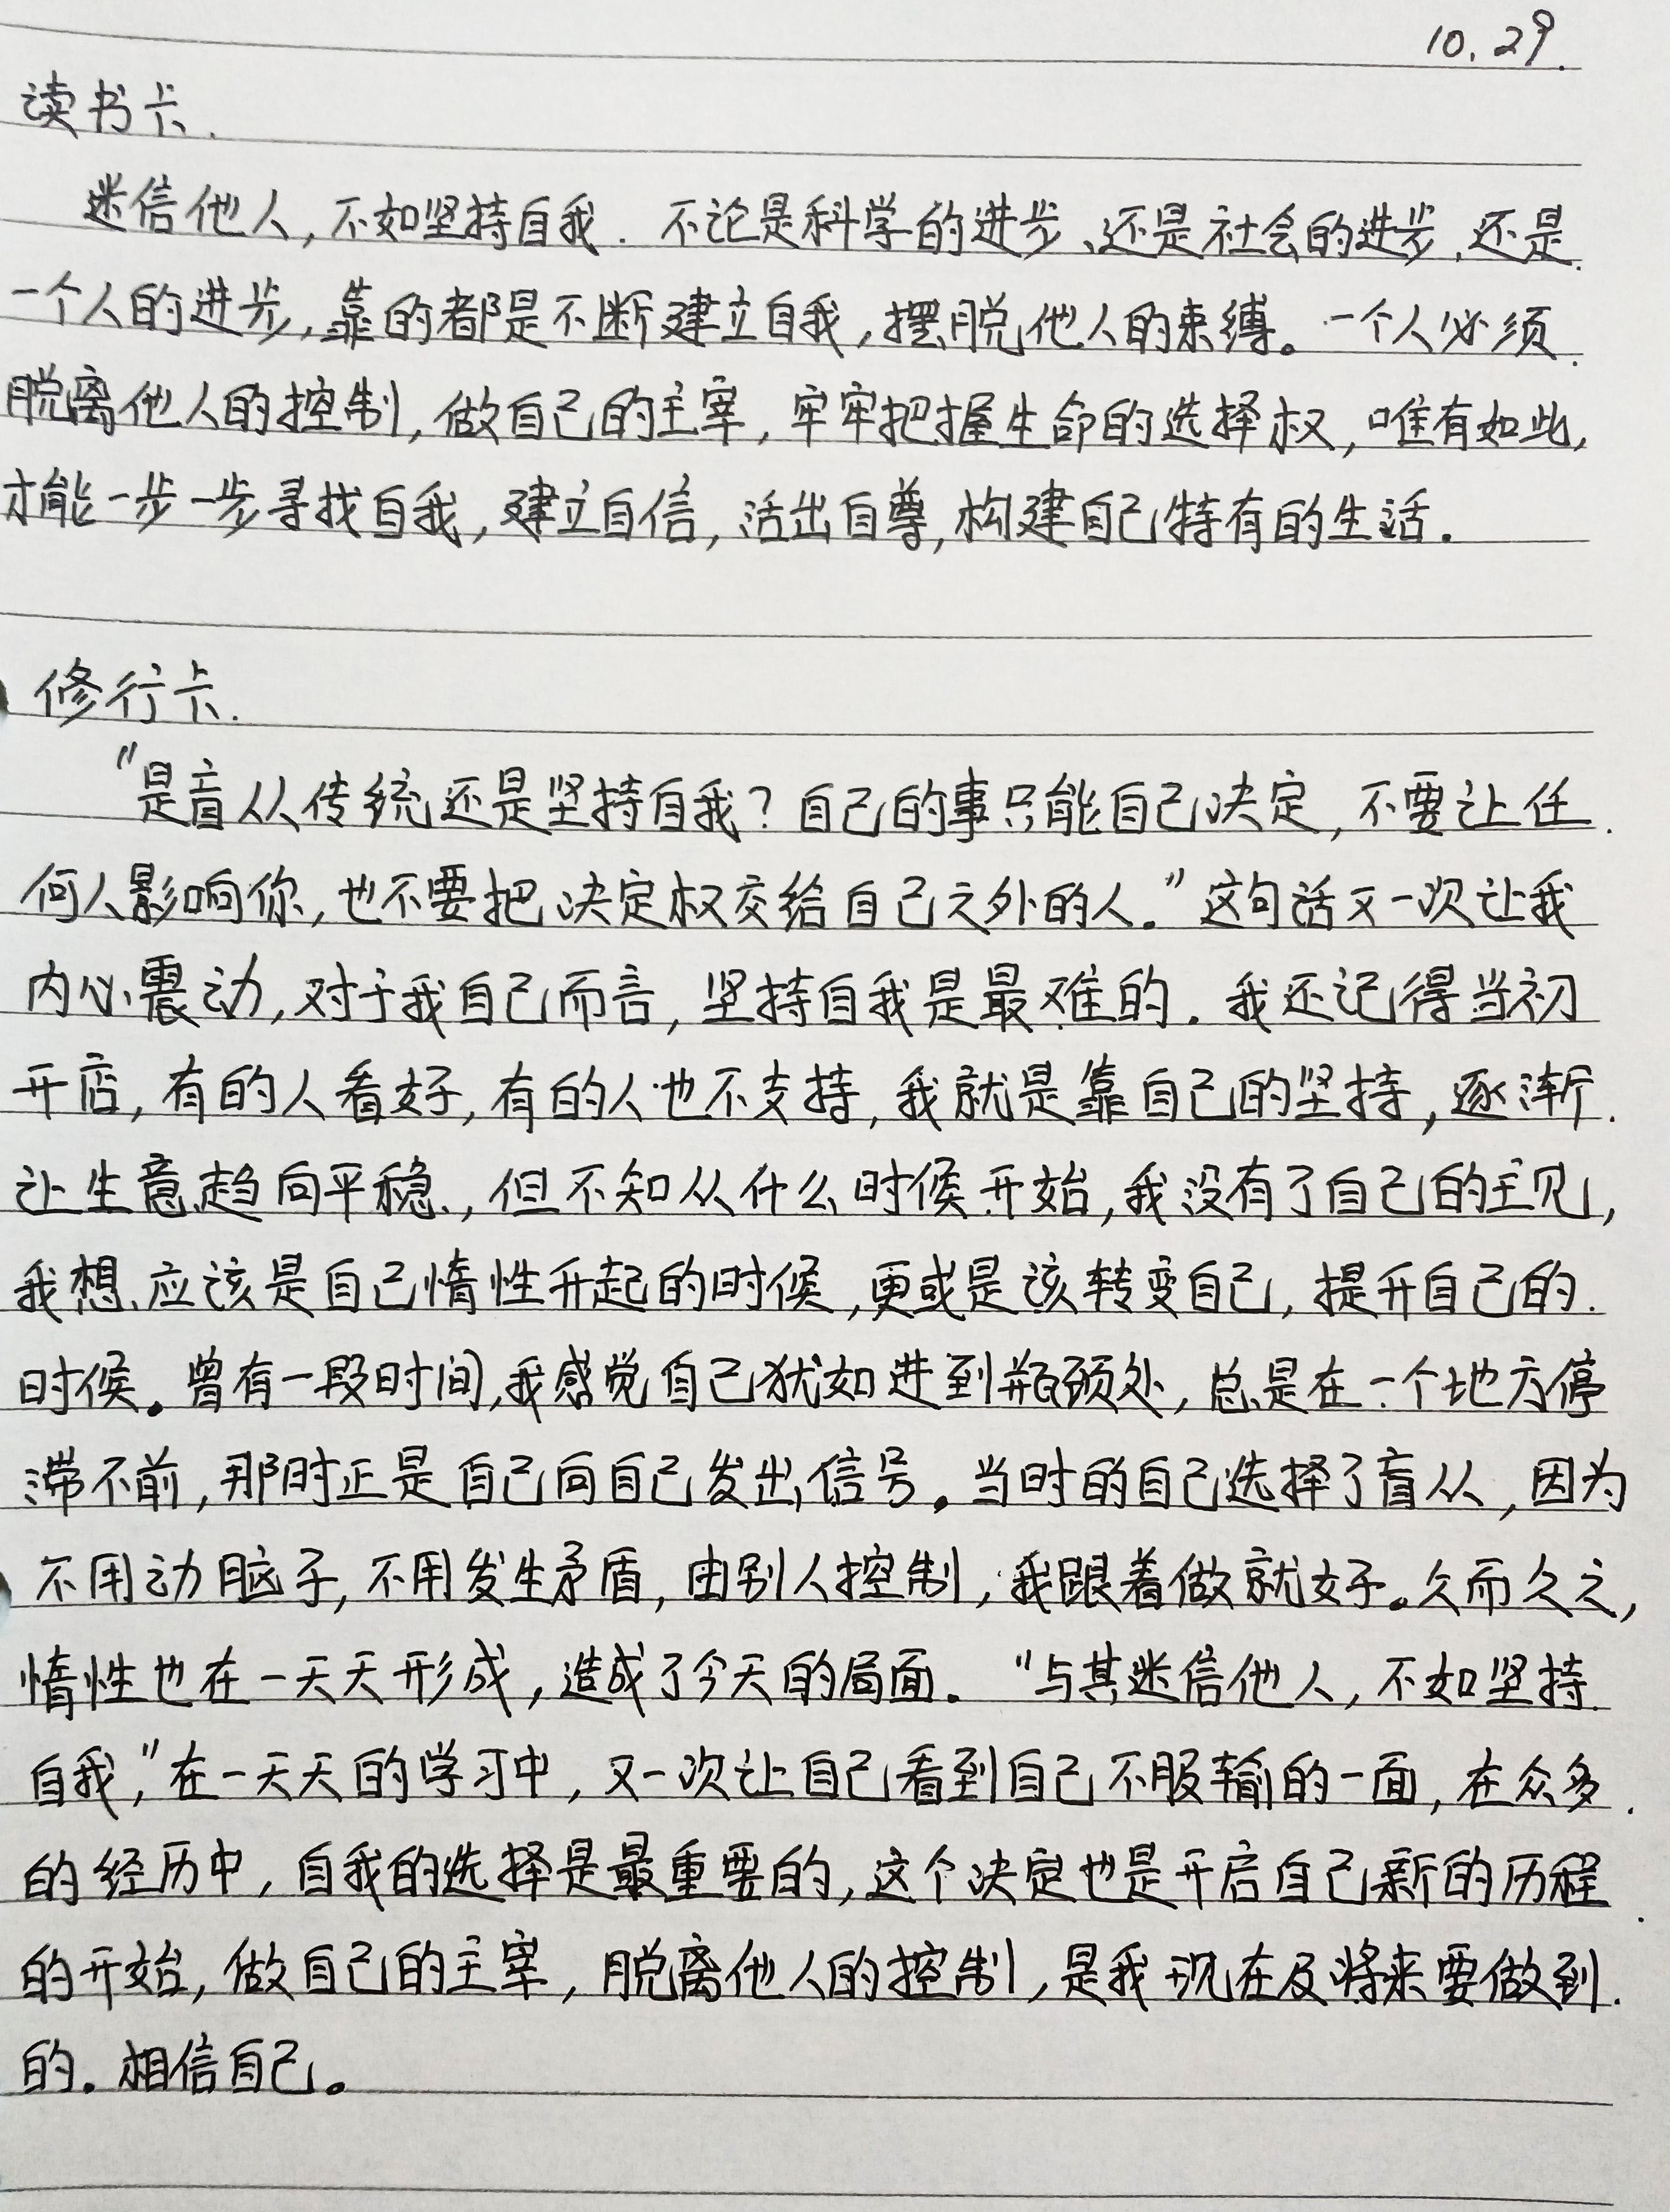 10.29.
读书卡.
迷信他人,不如坚持自我.不论是科学的进步、还是社会的进步,还是
一个人的进步,靠的都是不断建立自我,摆脱他人的束缚。一个人必须
脱离他人的控制,做自己的主宰,牢牢把握生命的选择权,唯有如此,
才能一步一步寻找自我,建立自信,活出自尊,构建自己特有的生活.
修行卡.
"是盲从传统还是坚持自我?自己的事只能自己决定,不要让任
何人影响你,也不要把决定权交给自己之外的人。"这句话又一次让我
内心震动,对于我自己而言,坚持自我是最难的.我还记得当初
开店,有的人看好,有的人也不支持,我就是靠自己的坚持,逐渐
让生意趋向平稳,但不知从什么时候开始,我没有了自己的主见,
我想应该是自己惰性升起的时候,更或是该转变自己,提升自己的
时候。曾有一段时间,我感觉自己犹如进到瓶颈处,总是在一个地方停
滞不前,那时正是自己向自己发出信号。当时的自己选择了盲从,因为
不用动脑子,不用发生矛盾,由别人控制,我跟着做就好。久而久之,
惰性也在一天天形成,造成了今天的局面。"与其迷信他人,不如坚持
自我,"在一天天的学习中,又一次让自己看到自己不服输的一面,在众多
的经历中,自我的选择是最重要的,这个决定也是开启自己新的历程
的开始,做自己的主宰,脱离他人的控制,是我现在及将来要做到
的。相信自己。